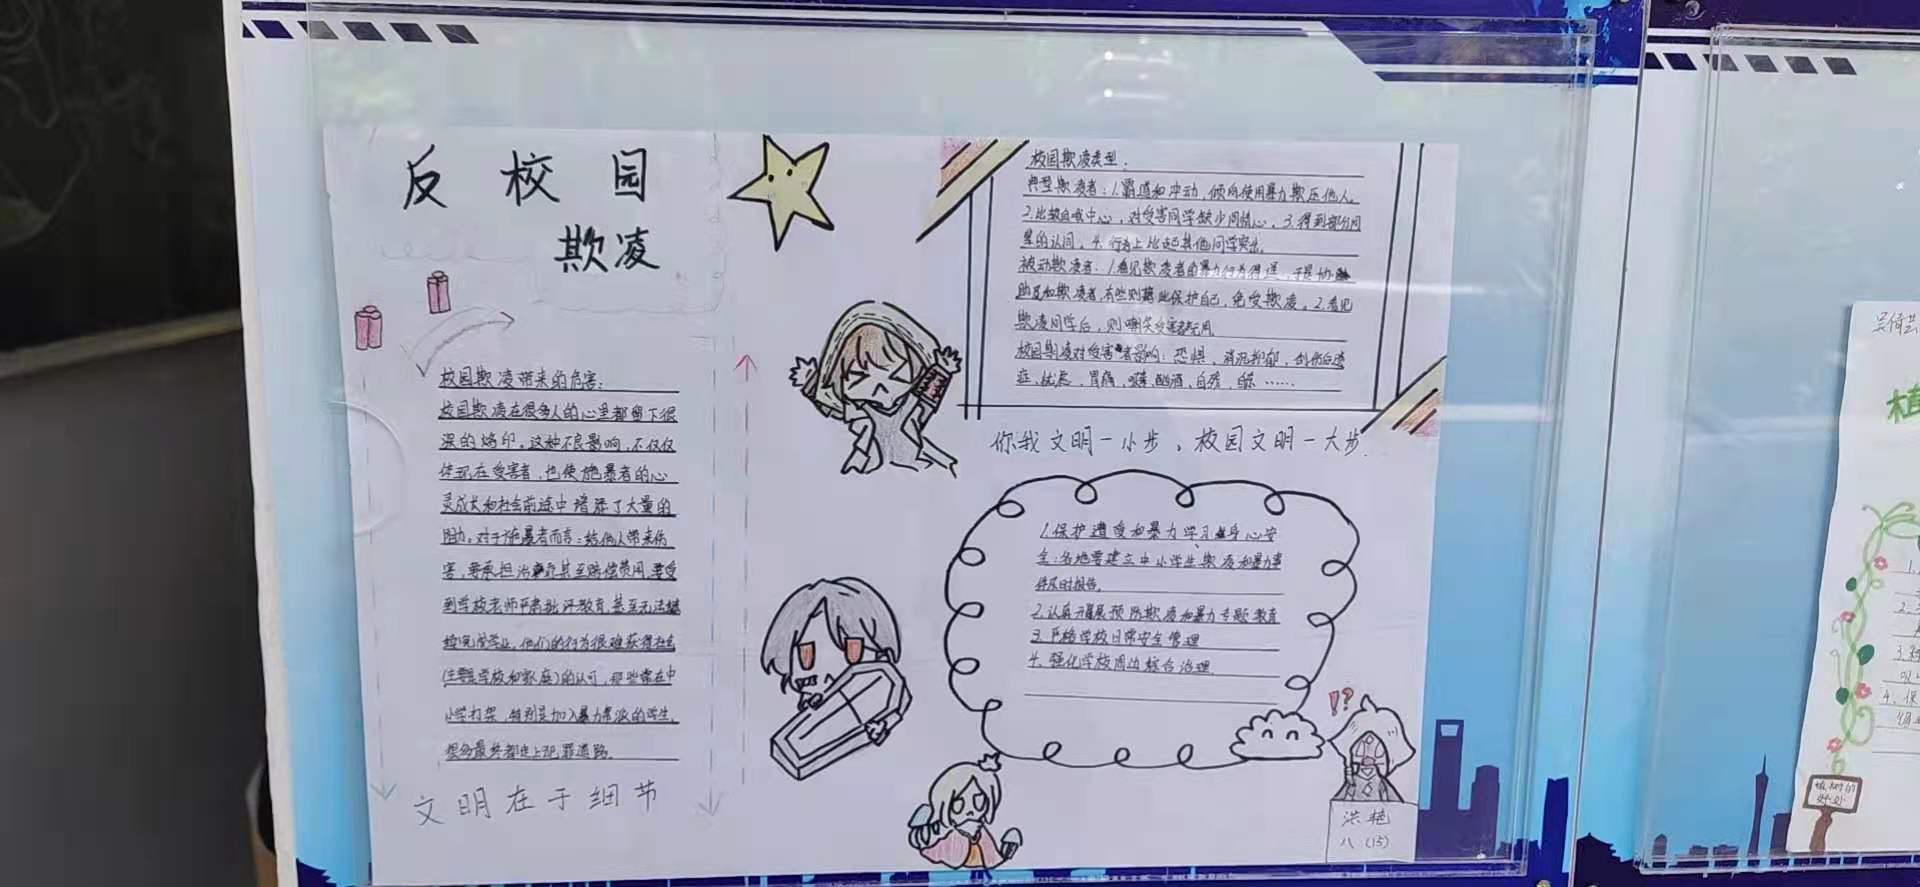 反校园
欺凌
校园欺凌带来的危害:
校园欺凌在很多人的心里都留下很
深的烙印。这种不良影响,不仅仅
体现在受害者,也使施暴者的心
灵成长和社会前途中增添了大量的
阻力。对于施暴者而言:给他人带来伤
害,要承担治疗甚至赔偿费用,要受
到学校老师严肃批评教育,甚至无法继
续完成学业。他们的行为很难获得社会
(主要是学校和家庭)的认可,那些常在中
小学打架,特别是加入暴力帮派的学生,
很多最终都走上犯罪道路。
文明在于细节
校园欺凌类型:
典型欺凌者:1.霸道和冲动,倾向使用暴力欺压他人。
2.比较自我中心,对受害同学缺少同情心。3.得到部分同
辈的认同。4.行为上比起其他同学突出。
被动欺凌者:1.看见欺凌者的暴力行为得逞,于是协
助及和欺凌者,有些则藉此保护自己,免受欺凌。2.看见
欺凌同学后,则嘲笑受害者
校园欺凌对受害者影响:恐惧,消沉抑郁,创伤后遗
症,忧虑,胃痛,酗酒,自残,自杀……
你我文明一小步,校园文明一大步.
1.保护遭受和暴力学习身心安
全:各地要建立中小学生欺凌和暴力事
件及时报告。
2.认真开展预防欺凌和暴力专题教育
3.严格学校日常安全管理
4.强化学校周边综合治理
!?
洪艳
八(15)
植树的
好处